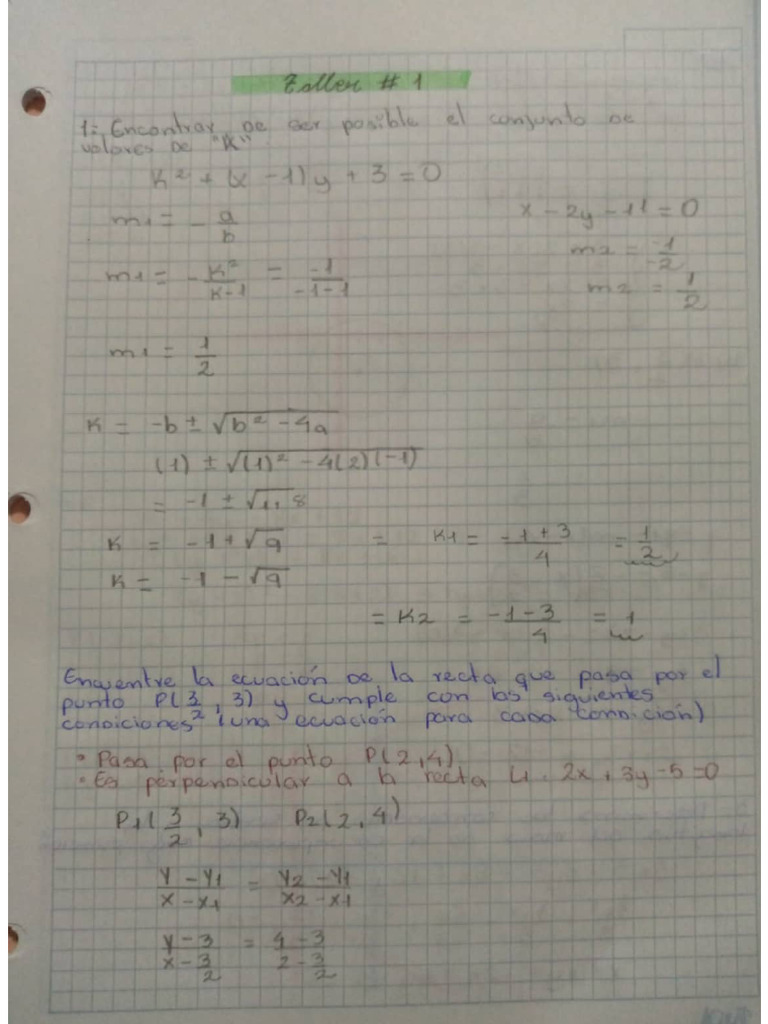 Taller # 1
1: Encontrar de ser posible el conjunto de
valores de "K"
K² + (x - 1) y + 3 = 0
x - 2y - 11 = 0
m1 = - a/b
m2 = -1/-2
m1 = - K²/K-1 = -1/-1-1
m2 = 1/2
m1 = 1/2
K = -b ± √b² - 4a
(1) ± √(1)² - 4(2)(-1)
= -1 ± √1, 8
K = -1 + √9 = K1 = -1+3/4 = 1/2
K = -1 - √9
= K2 = -1-3/4 = 1
Encuentre la ecuación de la recta que pasa por el
punto P(3/2, 3) y cumple con las siguientes
condiciones (una ecuación para cada condición)
• Pasa por el punto P(2,4)
• Es perpendicular a la recta L1. 2x + 3y - 5 = 0
P1(3/2, 3) P2(2,4)
y - y1/x - x1 = y2 - y1/x2 - x1
y - 3/x - 3/2 = 4 - 3/2 - 3/2